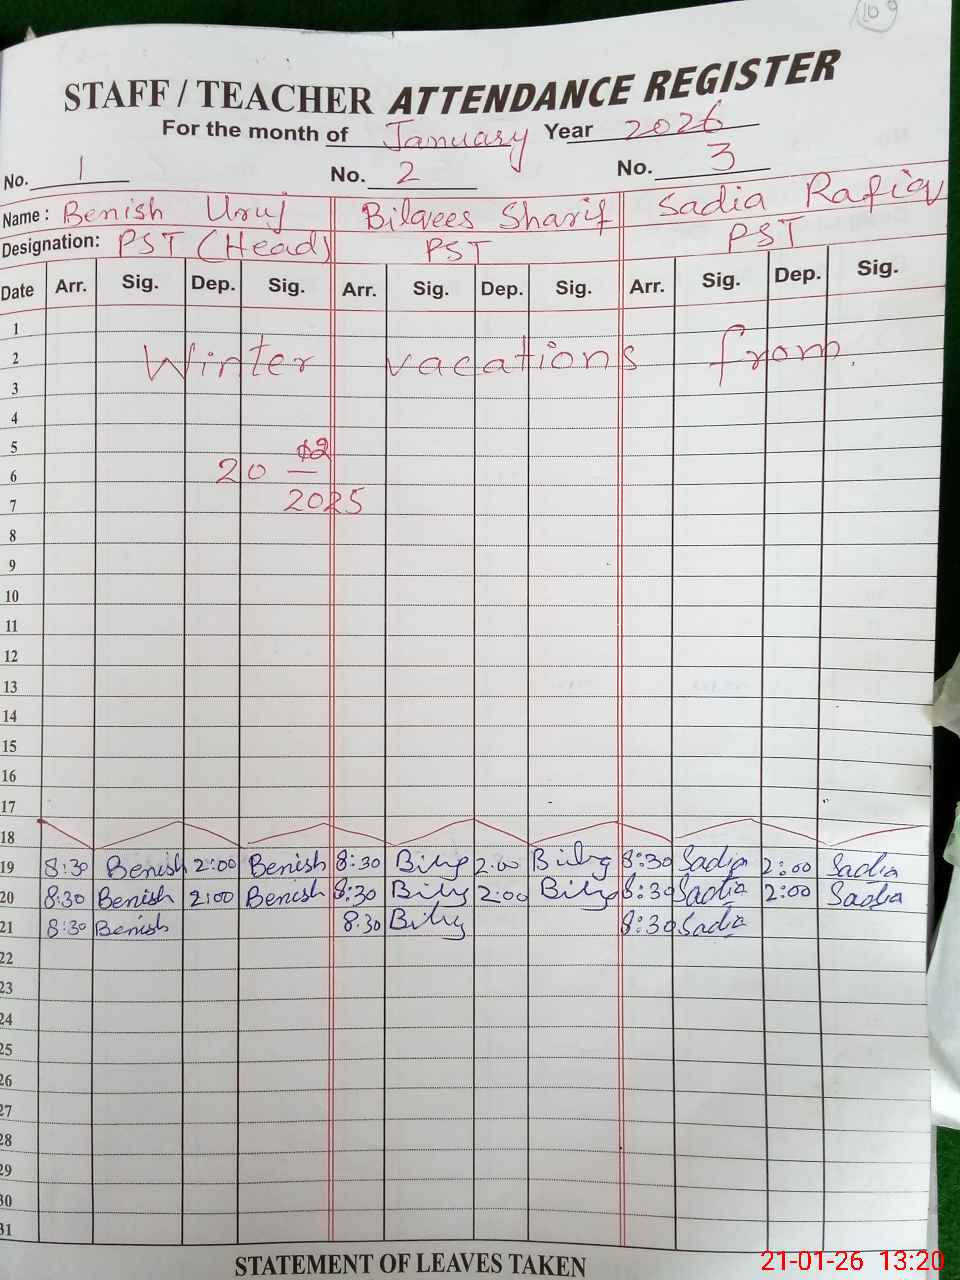 109
STAFF / TEACHER ATTENDANCE REGISTER
For the month of January Year 2026
No. 1 No. 2 No. 3
Name : Benish Uruj Bilqees Sharif Sadia Rafiq
Designation: PST (Head) PST PST
Date Arr. Sig. Dep. Sig. Arr. Sig. Dep. Sig. Arr. Sig. Dep. Sig.
1
2 Winter vacations from.
3
4
5 12
6 20
7 2025
8
9
10
11
12
13
14
15
16
17
18
19 8:30 Benish 2:00 Benish 8:30 Bilq 2:00 Bilq 8:30 Sadia 2:00 Sadia
20 8:30 Benish 2:00 Benish 8:30 Bilq 2:00 Bilq 8:30 Sadia 2:00 Sadia
21 8:30 Benish 8:30 Bilq 8:30 Sadia
22
23
24
25
26
27
28
29
30
31
STATEMENT OF LEAVES TAKEN
21-01-26 13:20